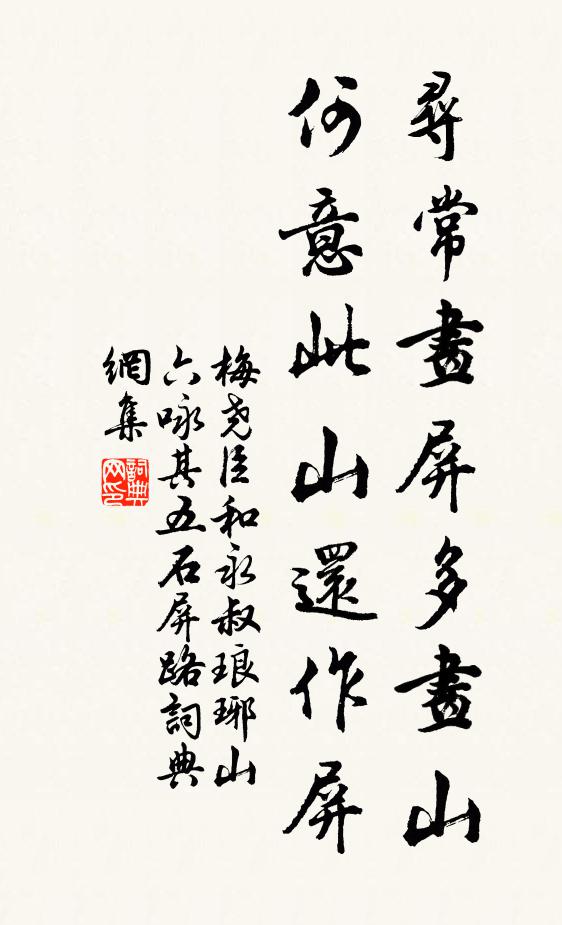 尋常畫屏多畫山
何意此山還作屏
梅堯臣和永叔琅琊山
六咏其五石屏路詞典
網集
詞典網印